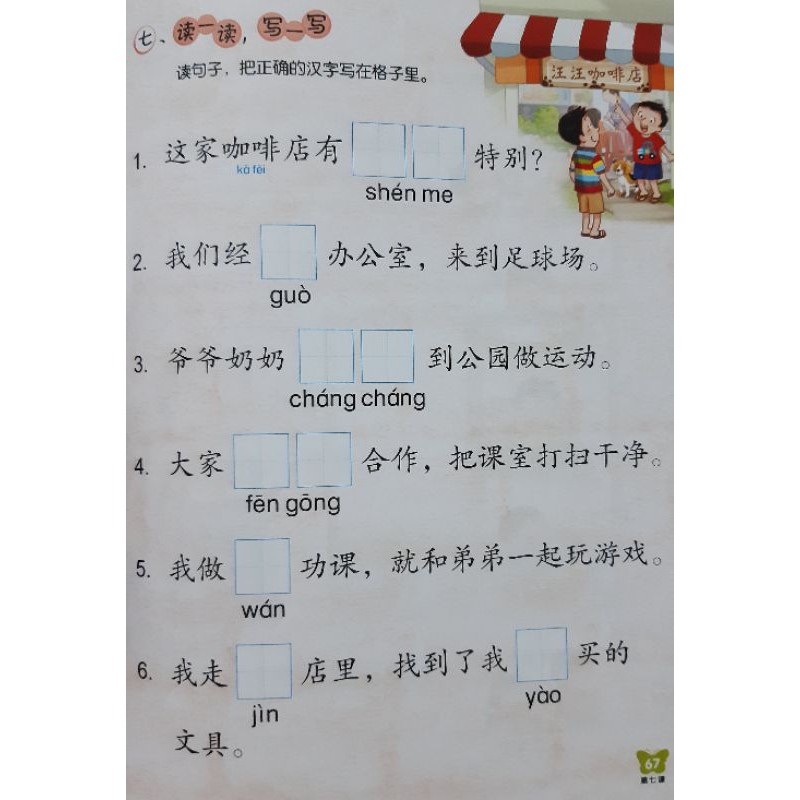 七、读一读，写一写
读句子，把正确的汉字写在格子里。
汪汪咖啡店
1. 这家咖啡店有 特别？
kā fēi
shén me
2. 我们经 办公室，来到足球场。
guò
3. 爷爷奶奶 到公园做运动。
cháng cháng
4. 大家 合作，把课室打扫干净。
fēn gōng
5. 我做 功课，就和弟弟一起玩游戏。
wán
6. 我走 店里，找到了我 买的
jìn yào
文具。
67
第七课